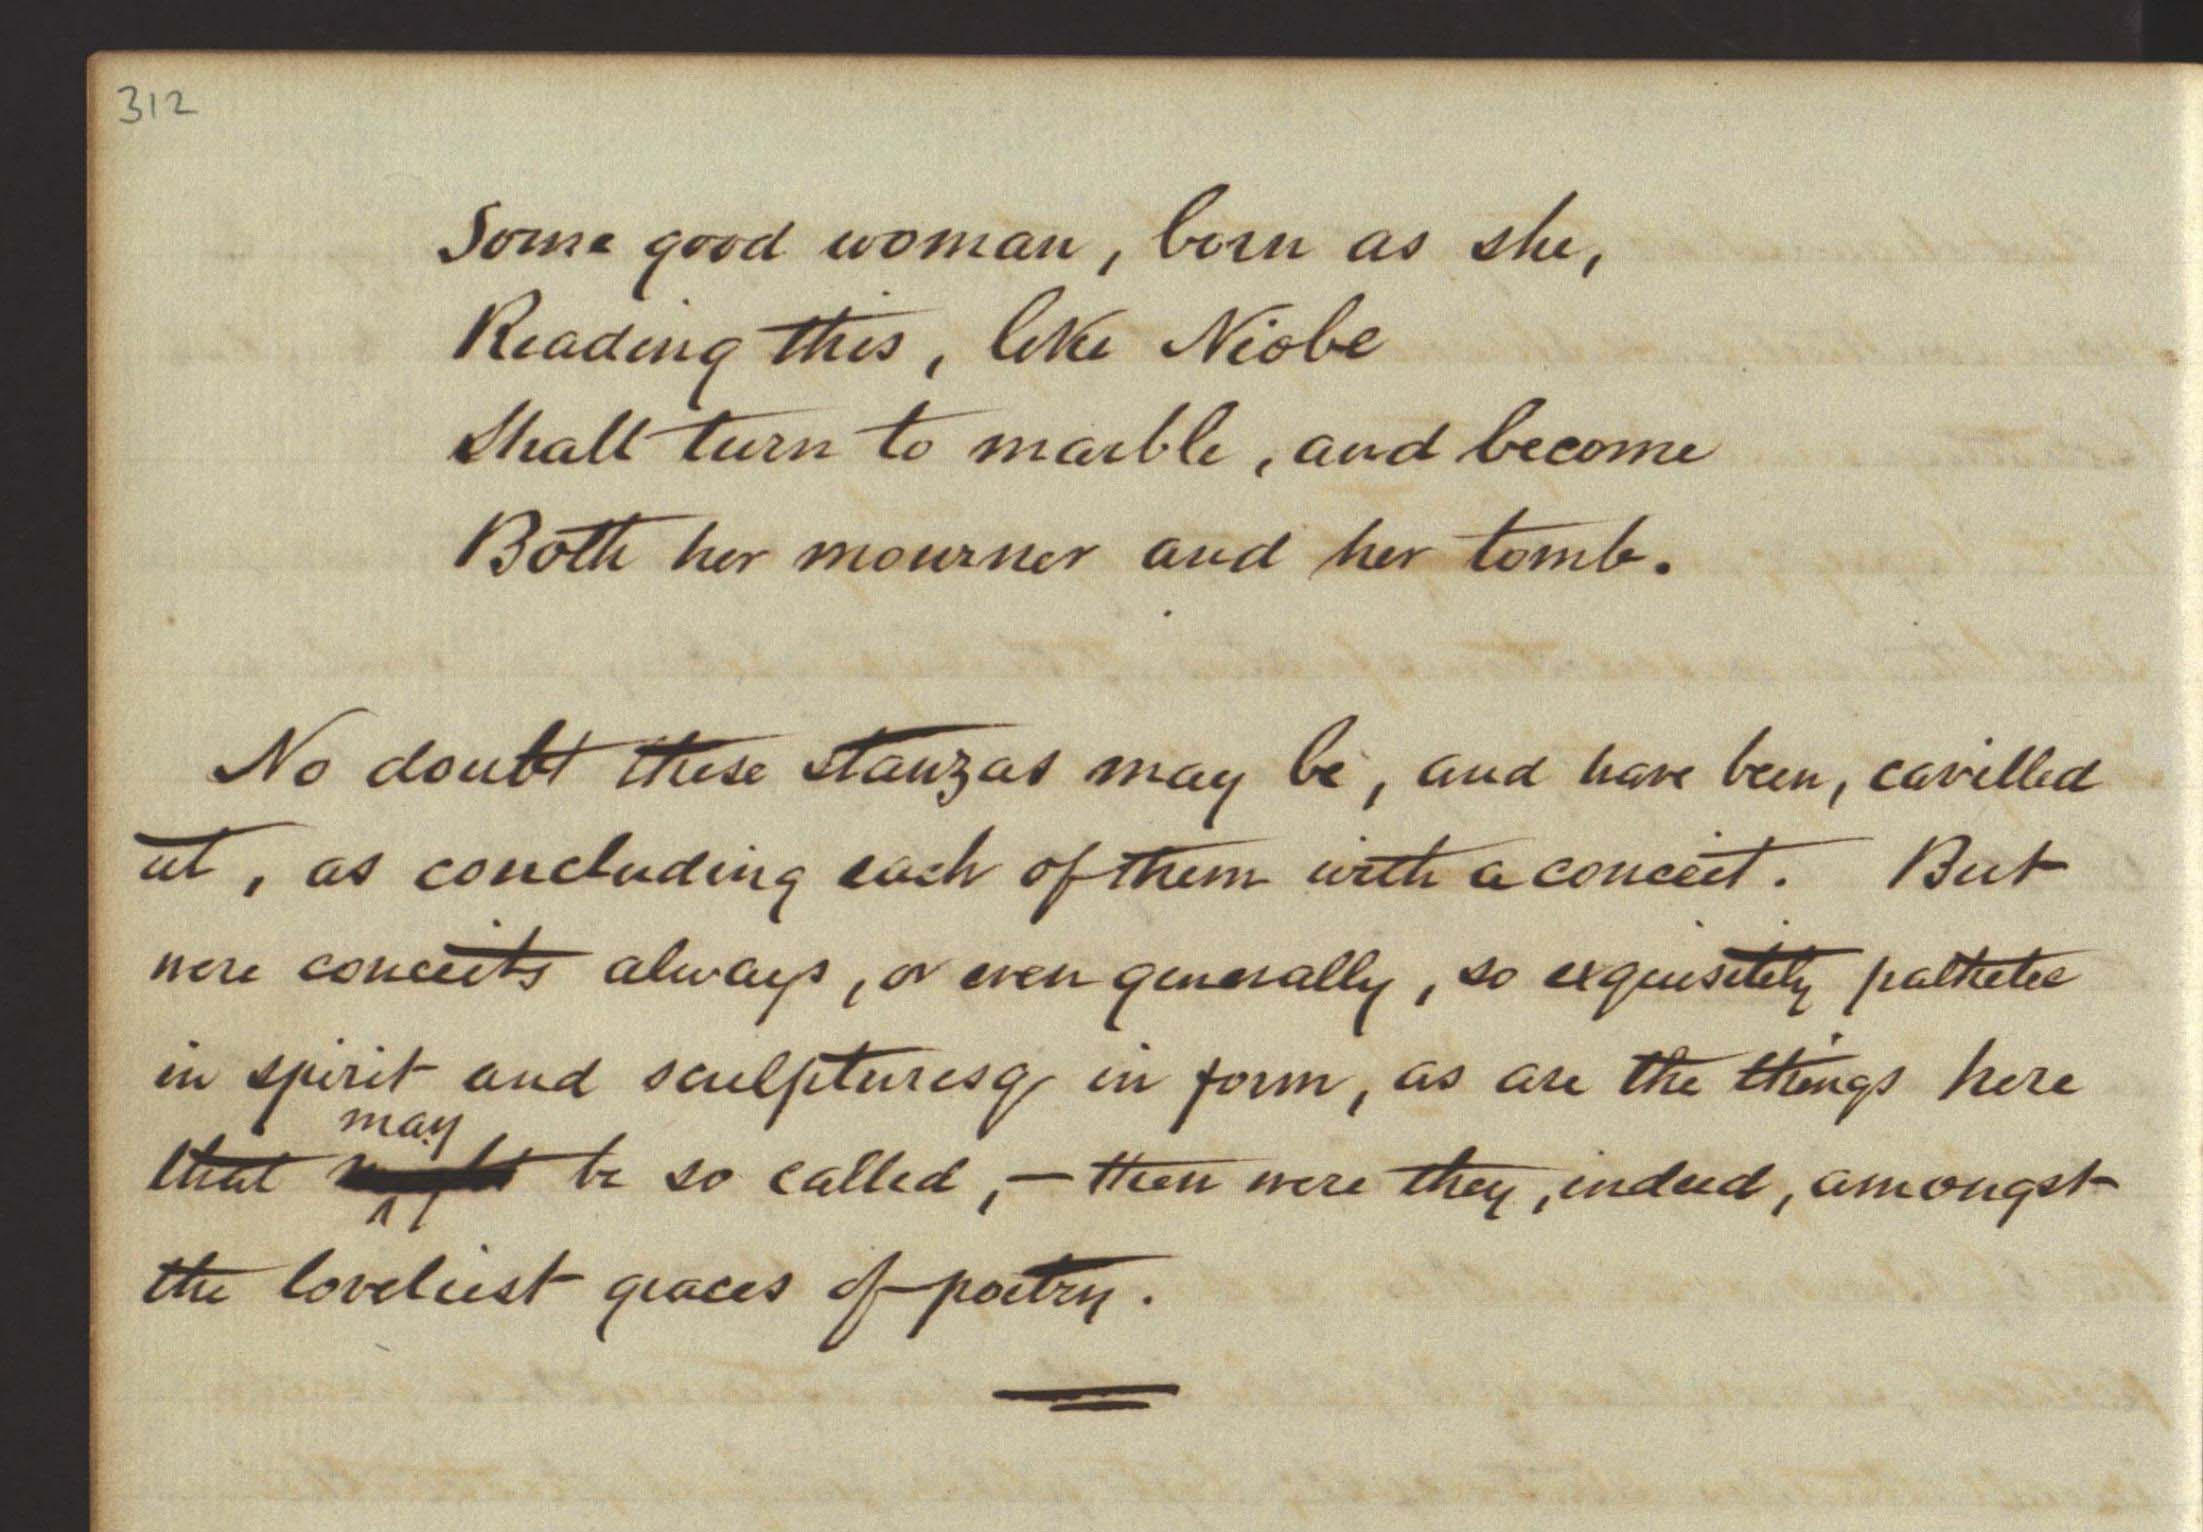 312
Some good woman, born as she,
Reading this, like Niobe
Shall turn to marble, and become
Both her mourner and her tomb.
No doubt these stanzas may be, and have been, cavilled
at, as concluding each of them with a conceit. But
were conceits always, or even generally, so exquisitely pathetic
in spirit and sculpturesq in form, as are the things here
may
that might be so called, — then were they, indeed, amongst
the loveliest graces of poetry.